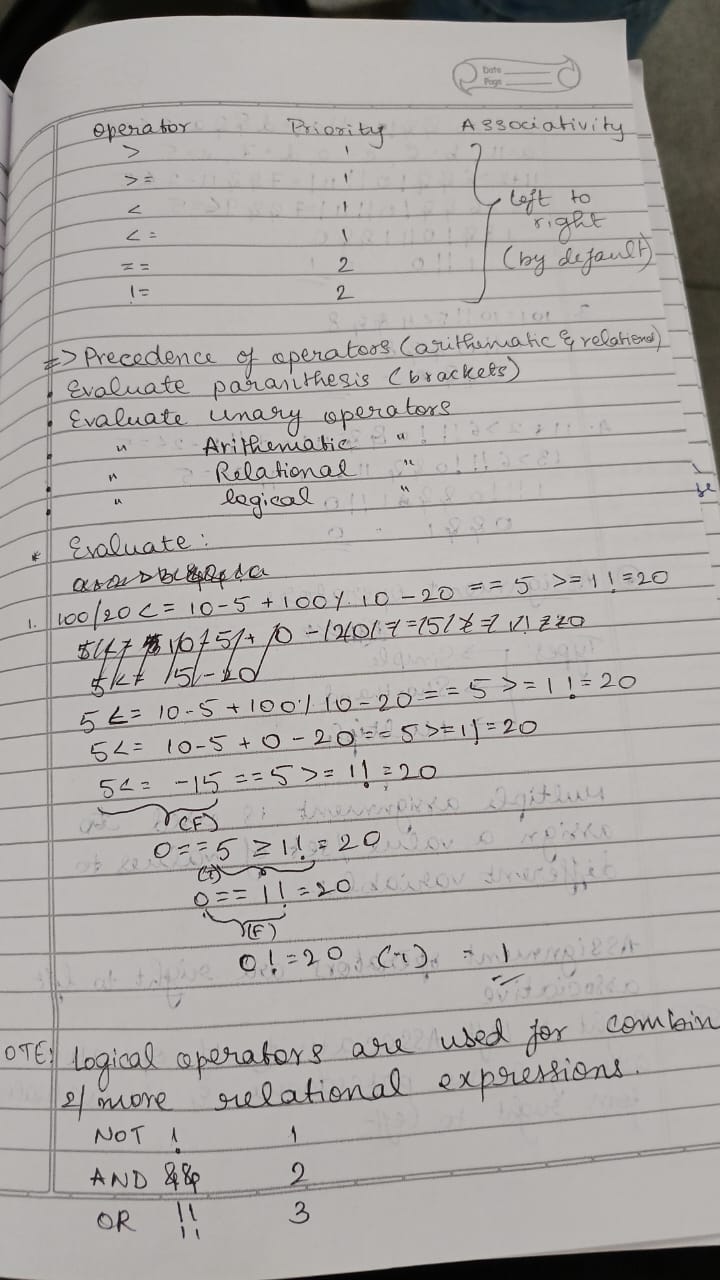 Date
Page
operator Priority Associativity
> 1
>= 1
< 1
<= 1
== 2
!= 2
left to
right
(by default)
=> Precedence of operators (arithematic & relational)
• Evaluate paranthesis (brackets)
• Evaluate unary operators
• " Arithematic "
• " Relational "
• " logical "
* Evaluate:
1. 100/20 <= 10-5+100% 10-20 == 5 >= 1 != 20
5 <= 10-5+100% 10-20 == 5 >= 1 != 20
5 <= 10-5+0-20 == 5 >= 1 != 20
5 <= -15 == 5 >= 1 != 20
(F)
0 == 5 ≥ 1 != 20
(T)
0 == 1 != 20
(F)
0 != 20 (T) = 1
OTE: Logical operators are used for combin
2/ more relational expressions.
NOT ! 1
AND && 2
OR !! 3